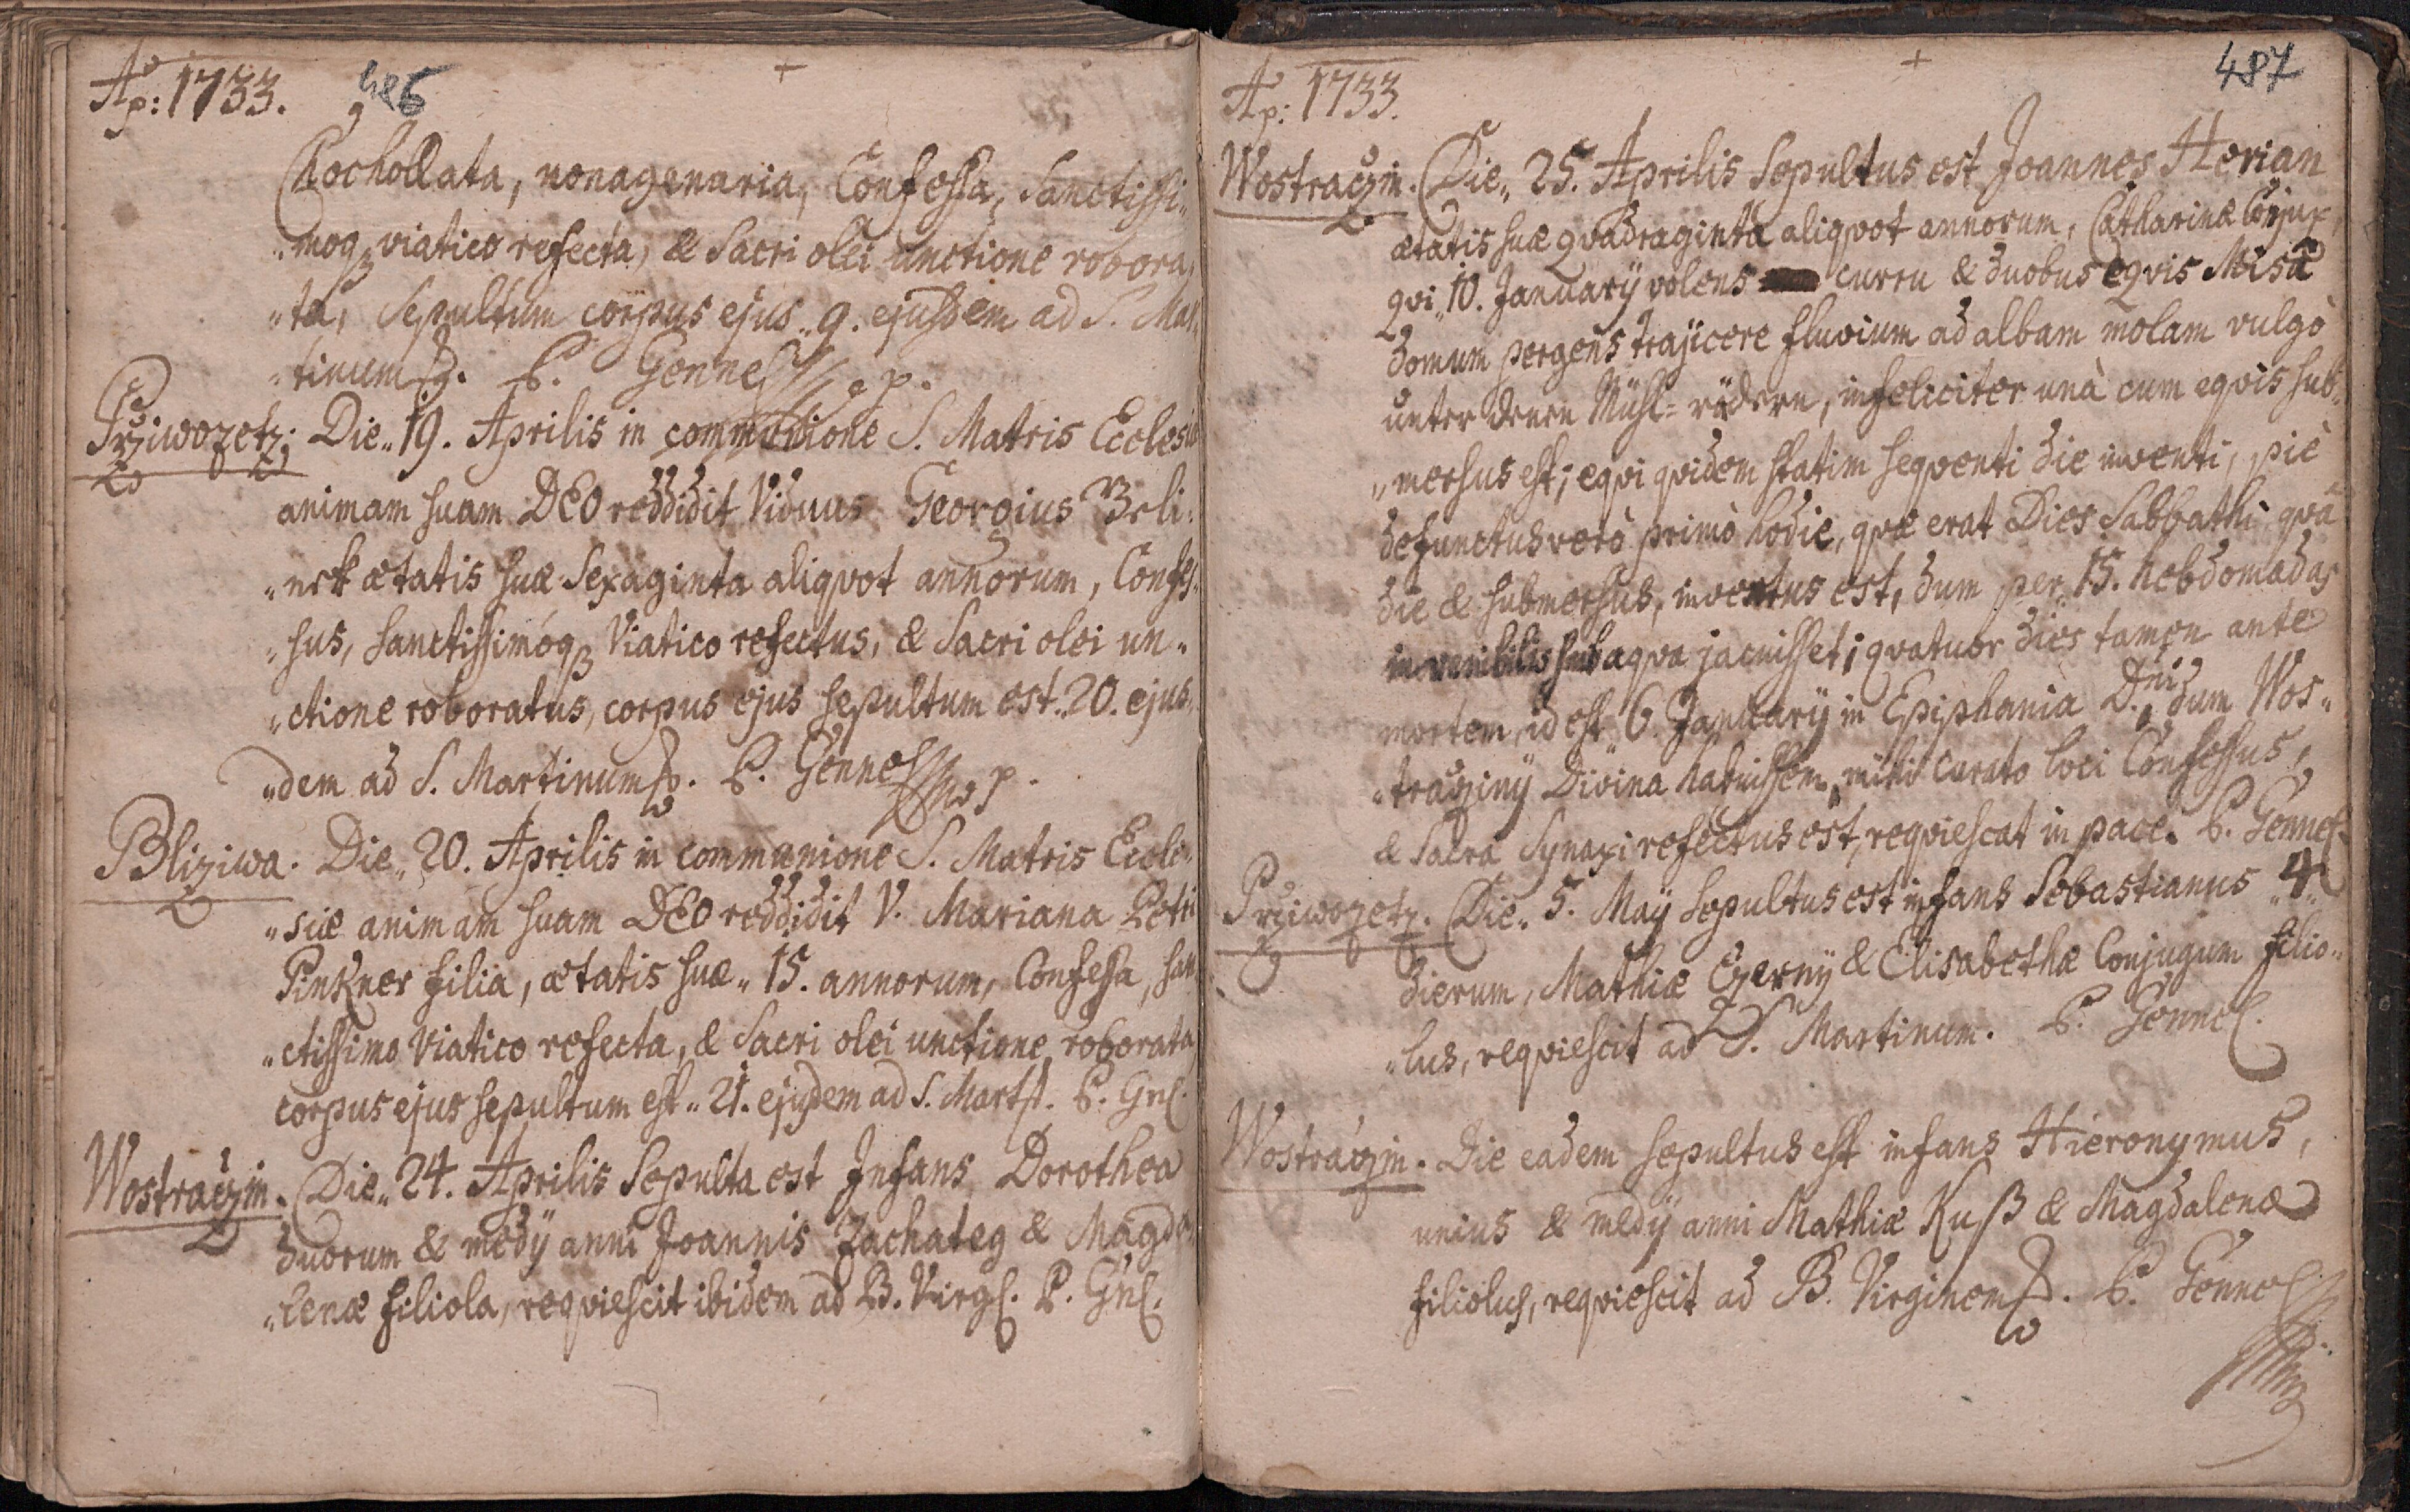 Aº p: 1733. 486
Rochollata, nonagenaria, Confessa, Sanctissi„
„moq; viatico refecta, & Sacri olei unctione robora„
„ta, Sepultum corpus ejus „9. ejusdem ad S. Mar„
„tinum. P. Gennel p.
Prziwozetz. Die „19. Aprilis in communione S. Matris Ecclesiæ
animam suam DEO reddidit Viduus Georgius Beli„
„nek ætatis suæ Sexaginta aliqvot annorum, Confes„
„sus, sanctissimóq; Viatico refectus, & Sacri olei un„
„ctione roboratus, corpus ejus sepultum est „20. ejus„
„dem ad S. Martinum. P. Gennel p.
Bliziwa. Die „20. Aprilis in communione S. Matris Eccle„
„siæ animam suam DEO reddidit V. Mariana Petri
Pinkner filia, ætatis suæ „15. annorum, Confessa, san
„ctissimo Viatico refecta, & Sacri olei unctione roborata
corpus ejus sepultum est „21. ejusdem ad S. Mart. P. Gnl.
Wostraczin. Die „24. Aprilis Sepulta est Infans Dorothea
duorum & medÿ anni Joannis Zachateg & Magda„
„lenæ filiola, reqviescit ibidem ad B. Virg. P. Gnl.
Aº p: 1733. 487
Wostraczin. Die „25. Aprilis Sepultus est Joannes Herian
ætatis suæ qvadraginta aliqvot annorum, Catharinæ Conjux,
qvi „10. Januarÿ volens curru & duobus eqvis Misâ
domum pergens trajicere fluvium ad albam molam vulgò
unter denen Mühl=rädern, infeliciter unà cum eqvis sub„
„mersus est; eqvi qvidem statim seqventi die inventi, piè
defunctus verò primò hodie, qvæ erat Dies Sabbathi qvâ
die & submersus, inventus est, dum per 15. hebdomadas
invenibilis sub aqva jacuisset; qvatuor dies tamen ante
mortem, id est „6. Januarÿ in Epiphania D.ni, dum Wos„
„traczinÿ Divina habuissem, mihi Curato loci Confessus,
& Sacra Synaxi refectus est, reqviescat in pace. P. Gennel.
Prziwozetz. Die „5. Maÿ Sepultus est infans Sebastianus „4„
dierum, Mathiæ Czernÿ & Elisabethæ Conjugum filio„
„lus, reqviescit ad S. Martinum. P. Gennel.
Wostraczin. Die eadem sepultus est infans Hieronymus,
unius & medÿ anni Mathiæ Kuß & Magdalenæ
filiolus, reqviescit ad B. Virginem. P. Gennel